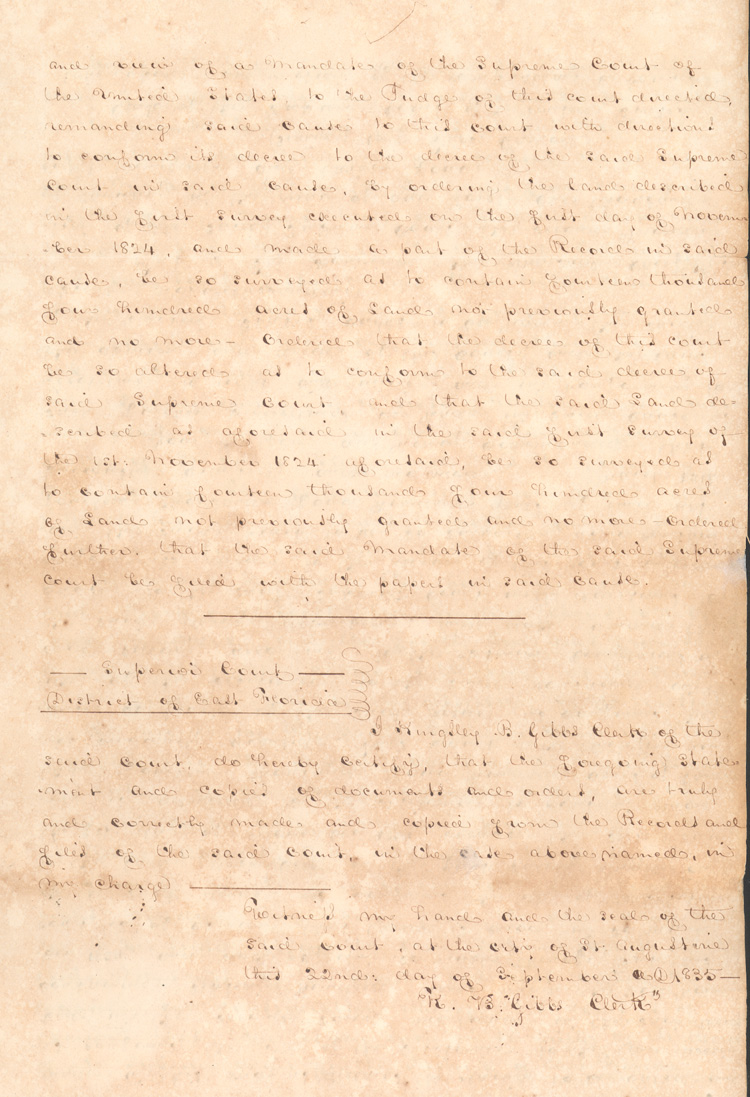 and view of a Mandate of the Supreme Court of
the United States, to the Judge of this court directed,
remanding said cause to this court with directions
to conform its decree to the decree of the said Supreme
Court in said cause, by ordering the land described
in the first survey executed on the first day of Novem
-ber 1824, and made a part of the Record in said
cause, be so surveyed as to contain fourteen thousand
four hundred acres of Land not previously granted
and no more - Ordered that the decree of this court
be so altered as to conform to the said decree of
said Supreme Court, and that the said Land de-
-scribed as aforesaid in the said first survey of
the 1st: November 1824 aforesaid, be so surveyed as
to contain fourteen thousand four hundred acres
of Land not previously granted and no more - Ordered
further, that the said Mandate of the said Supreme
court be filed with the papers in said cause.
Superior Court
District of East Florida
I Kingsley B. Gibbs Clerk of the
said Court, do hereby certify, that the foregoing state
-ment and copies of documents and orders, are truly
and correctly made and copied from the Records and
files of the said Court, in the case above named, in
my charge
Witness my hand and the seal of the
said Court, at the city of St. Augustine
this 22nd: day of September AD 1835 -
"K. B. Gibbs Clerk"